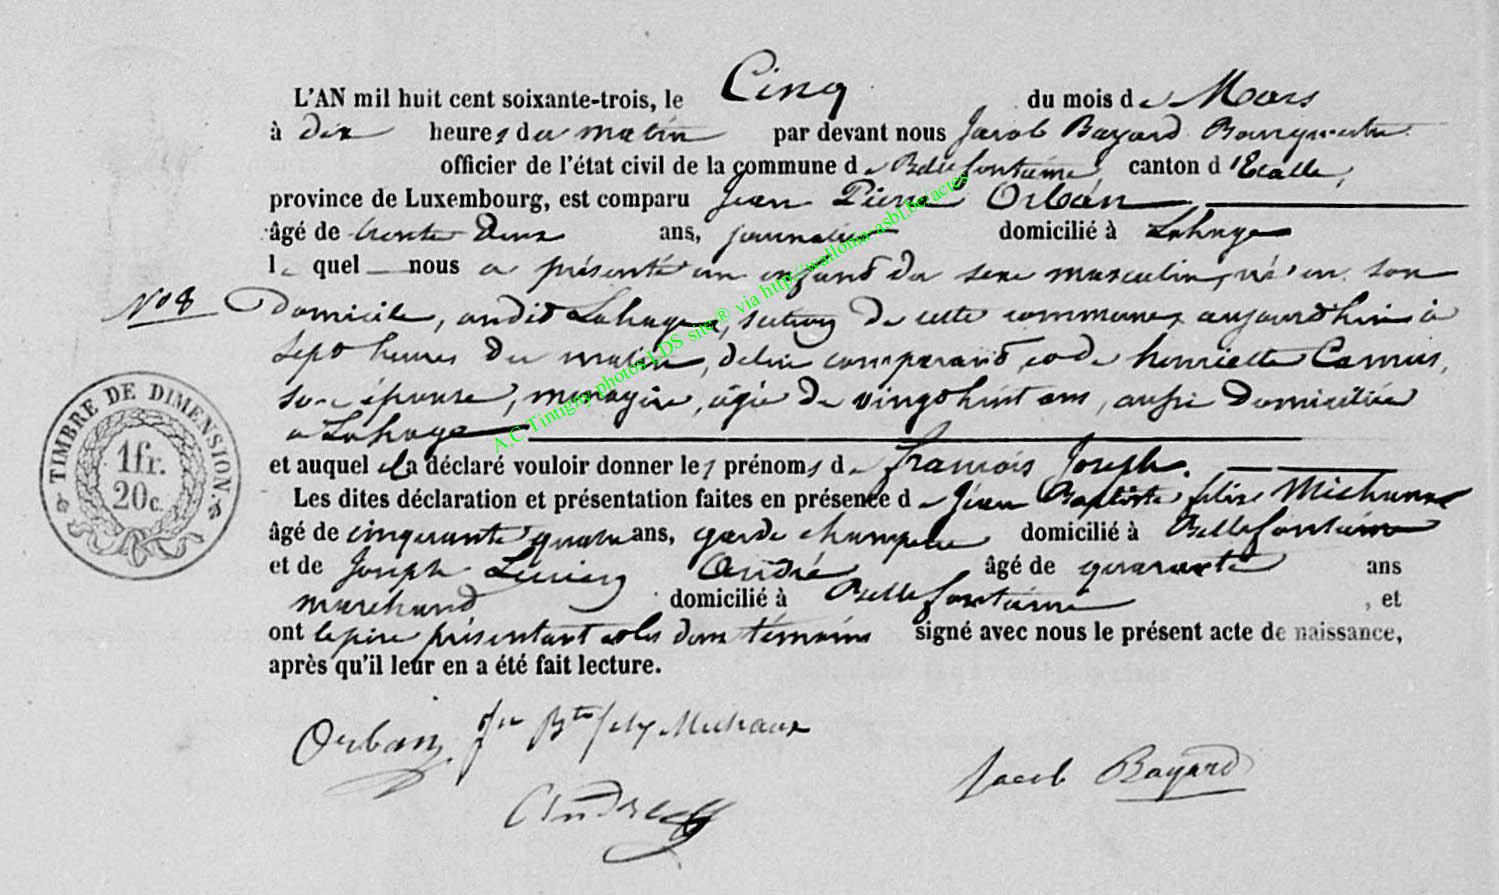 L'AN mil huit cent soixante-trois, le Cinq du mois de Mars
à dix heures du matin par devant nous Jacob Bayard Bourgmestre
officier de l'état civil de la commune de Bellefontaine canton d'Etalle,
province de Luxembourg, est comparu Jean Pierre Orban
âgé de trente Deux ans, journalier domicilié à Lahage
le quel nous a présenté un enfant du sexe masculin, né en son
No 8 Domicile, audit Lahage, section de cette commune, aujourdhui à
Sept heures du matin, de lui comparant, et de henriette Camus,
son épouse, menagère, agée de vingt huit ans, aussi Domiciliée
a Lahage
et auquel il a déclaré vouloir donner les prénoms de francois Joseph.
Les dites déclaration et présentation faites en présence de Jean Baptiste felix Michaux
âgé de cinquante quatre ans, garde champetre domicilié à Bellefontaine
et de Joseph Lucien André âgé de quarante ans
marchand domicilié à Bellefontaine, et
ont le père présentant et les deux témoins signé avec nous le présent acte de naissance,
après qu'il leur en a été fait lecture.
TIMBRE DE DIMENSION.
1 fr.
20 c.
A.C Tintigny photos LDS site ® via http://wallonia-asbl.be/actes
Orban Jn Bte felix Michaux
André
Jacob Bayard